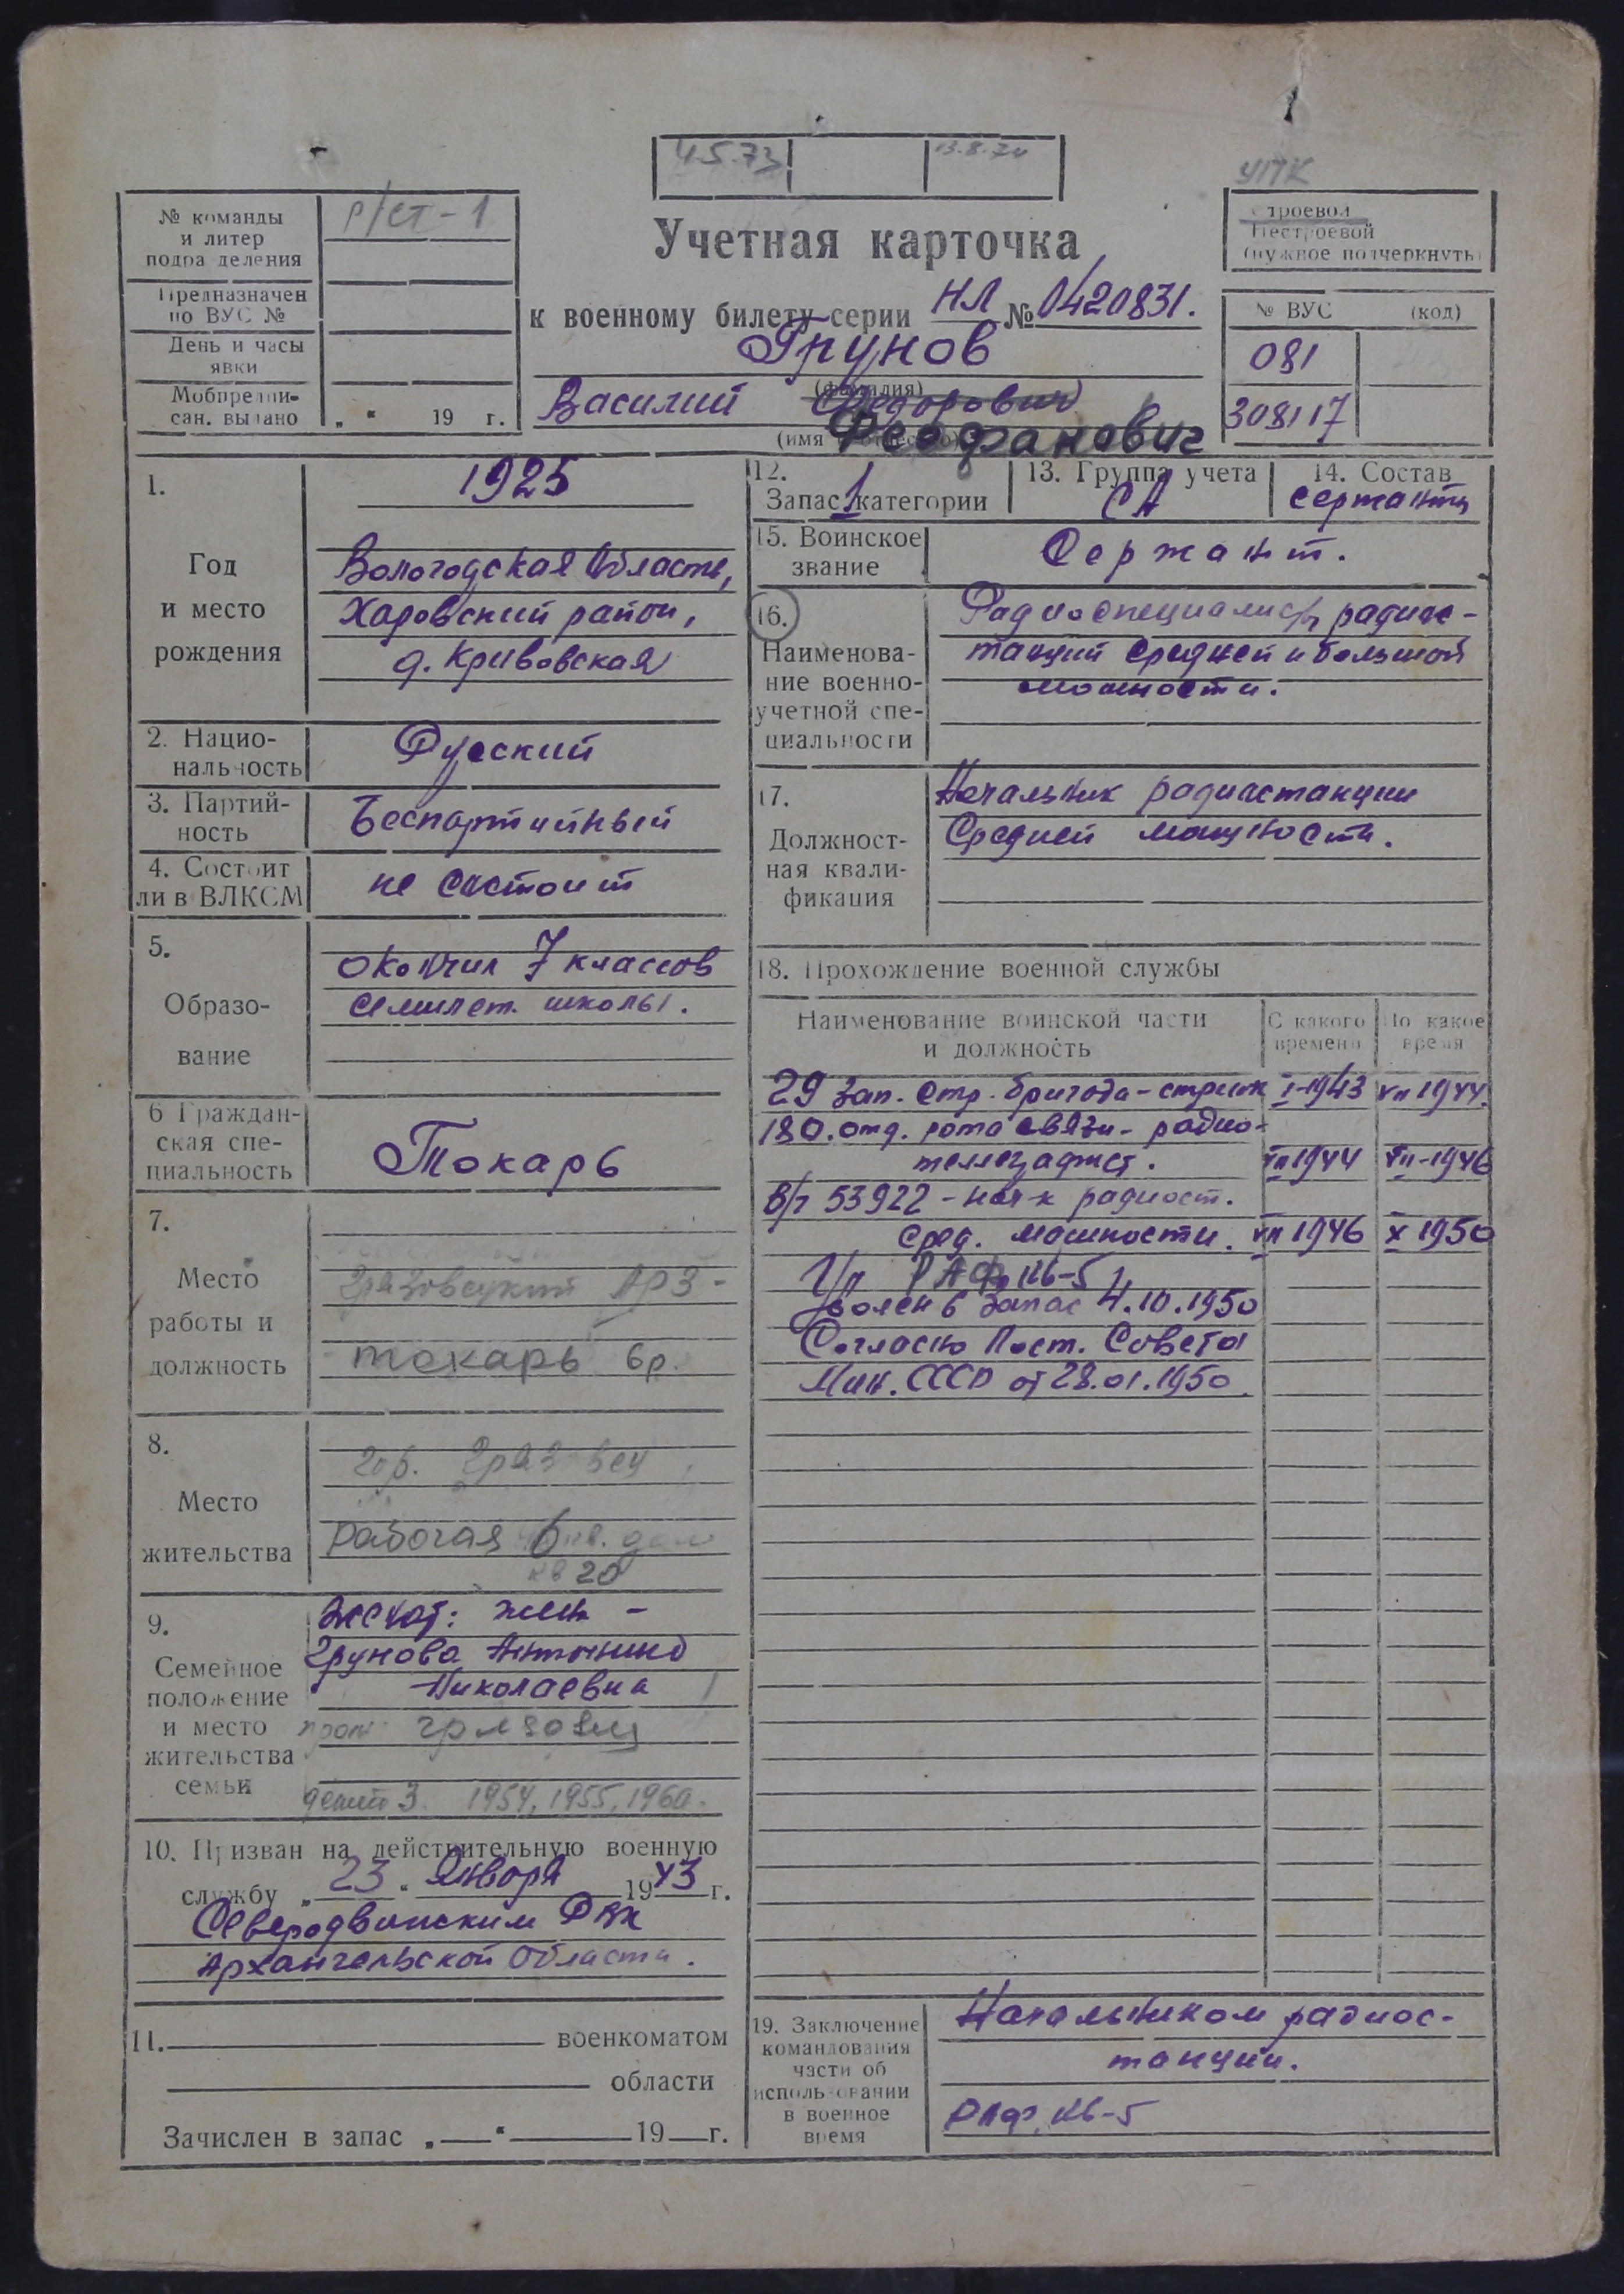 4.5.73
13.8.74
УПК
№ команды
и литер
подразделения
р/ст-1
Учетная карточка
Строевой
Нестроевой
(нужное подчеркнуть)
Предназначен
по ВУС №
к военному билету серии НЛ № 0420831.
№ ВУС (код)
День и часы
явки
Грунов
(фамилия)
081
Мобпредпи-
сан. выдано
„ “ 19 г.
Василий Федорович
Феофанович
(имя и отчество)
308117
1.
Год
и место
рождения
1925
Вологодская область,
Харовский район,
д. Кривовская
2. Нацио-
нальность
Русский
3. Партий-
ность
Беспартийный
4. Состоит
ли в ВЛКСМ
не состоит
5.
Образо-
вание
окончил 7 классов
семилет. школы.
6 Граждан-
ская спе-
циальность
Токарь
7.
Место
работы и
должность
Грязовецкий АРЗ-
токарь 6р.
8.
Место
жительства
гор. Грязовец
Рабочая
кв 20
9.
Семейное
положение
и место
жительства
семьи
Женат: жена -
Грунова Антонина
Николаевна
прож. Грязовец
детей 3. 1954, 1955, 1960.
10. Призван на действительную военную
службу „23“ Января 1943 г.
Северодвинским РВК
Архангельской области.
11. военкоматом
области
Зачислен в запас „ “ 19 г.
12.
Запас 1 категории
13. Группа учета
СА
14. Состав
сержанты
15. Воинское
звание
Сержант.
16.
Наименова-
ние военно-
учетной спе-
циальности
Радиоспециалисты радиос-
танций средней и большой
мощности.
17.
Должност-
ная квали-
фикация
Начальник радиостанции
Средней мощности.
18. Прохождение военной службы
Наименование воинской части
и должность
С какого
времени
По какое
время
29 зап. стр. бригада - стрелк I-1943 VII 1944.
180. отд. рота связи - радио-
телеграфист. VII 1944 VII-1946
В/ч 53922 - нач-к радиост.
сред. мощности. VII 1946 X 1950
РАФ КВ-5
Уволен в запас 4.10.1950
Согласно Пост. Совета
Мин. СССР от 28.01.1950.
19. Заключение
командования
части об
использовании
в военное
время
Начальником радиос-
танции.
РАФ, КВ-5